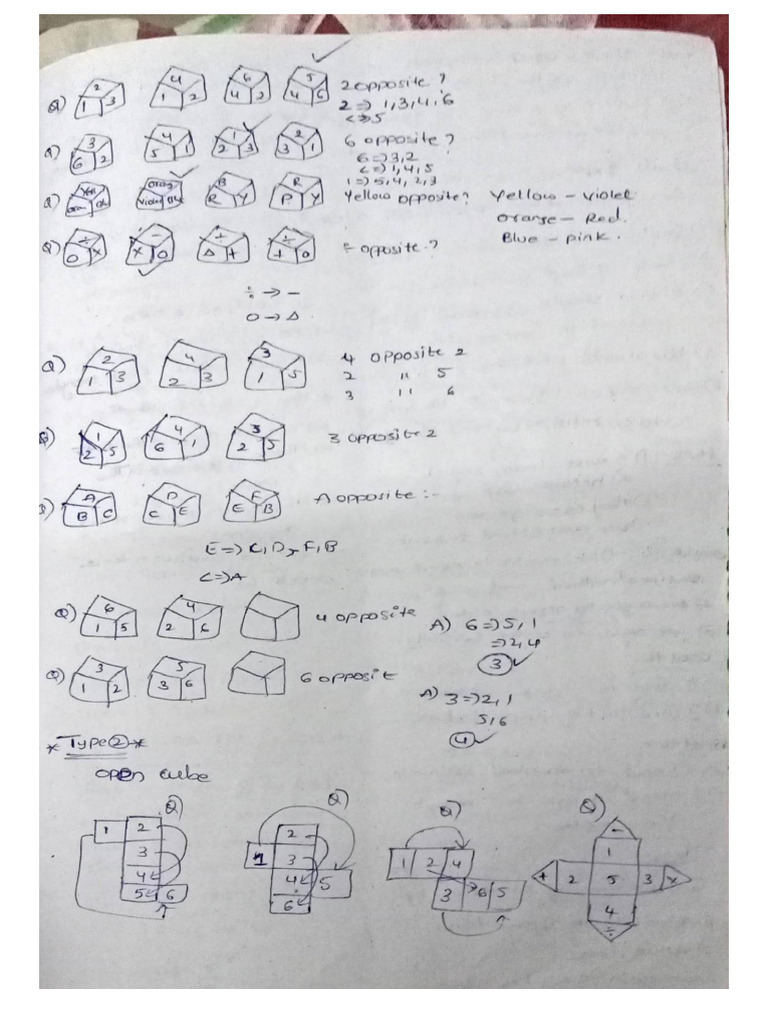 Q) 2 1 3 4 1 2 6 4 2 5 4 6 2 opposite ?
2 => 1,3,4,6
<=>5
Q) 3 6 2 4 5 1 1 2 3 2 3 1 6 opposite ?
6 => 3,2
<=> 1,4,5
1 => 5,4,2,3
Q) Yell Oran Blu Orang Violet Blu B R Y R P Y Yellow opposite? Yellow - Violet
Orange - Red.
Blue - pink.
Q) ÷ O × − × O + Δ + ÷ + O ÷ opposite ?
÷ → −
O → Δ
Q) 2 1 3 4 2 3 3 1 5 4 opposite 2
2 " 5
3 " 6
Q) 1 2 5 4 6 1 3 2 5 3 opposite 2
Q) A B C D C E F E B A opposite :-
E => C, D, F, B
C => A
Q) 6 1 5 4 2 6 4 opposite A) 6 => 5, 1
=> 2, 4
3 ✓
Q) 3 1 2 5 3 6 6 opposit A) 3 => 2, 1
5, 6
4 ✓
* Type 2 *
open cube
Q) Q) Q) Q)
1 2 3 4 5 6
2 1 3 4 5 6
1 2 4 3 6 5
− 1 + 2 5 3 × 4 ÷